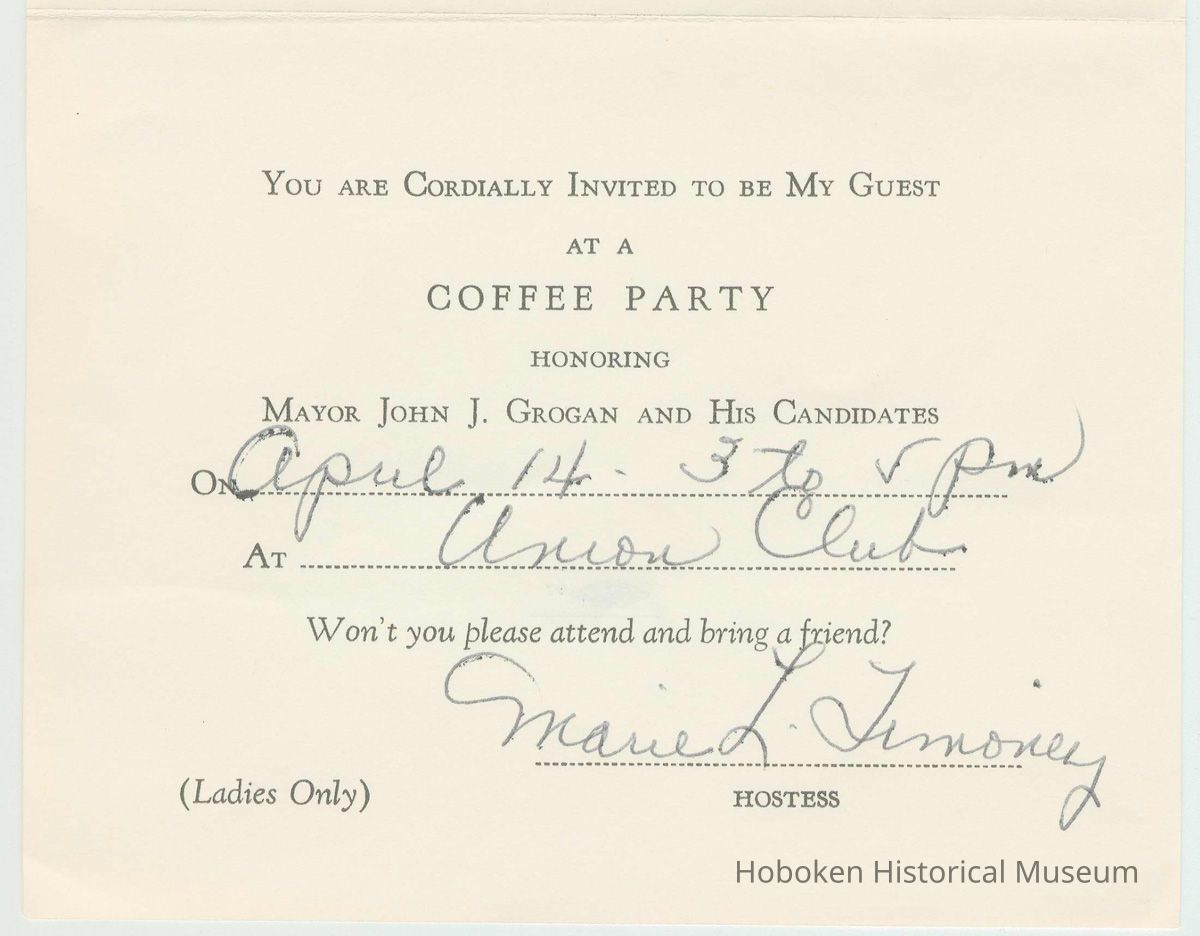 You are Cordially Invited to be My Guest
at a
COFFEE PARTY
honoring
Mayor John J. Grogan and His Candidates
On April 14 - 3 to 5 pm
At Union Club
Won't you please attend and bring a friend?
Marie L. Timoney
(Ladies Only) HOSTESS
Hoboken Historical Museum